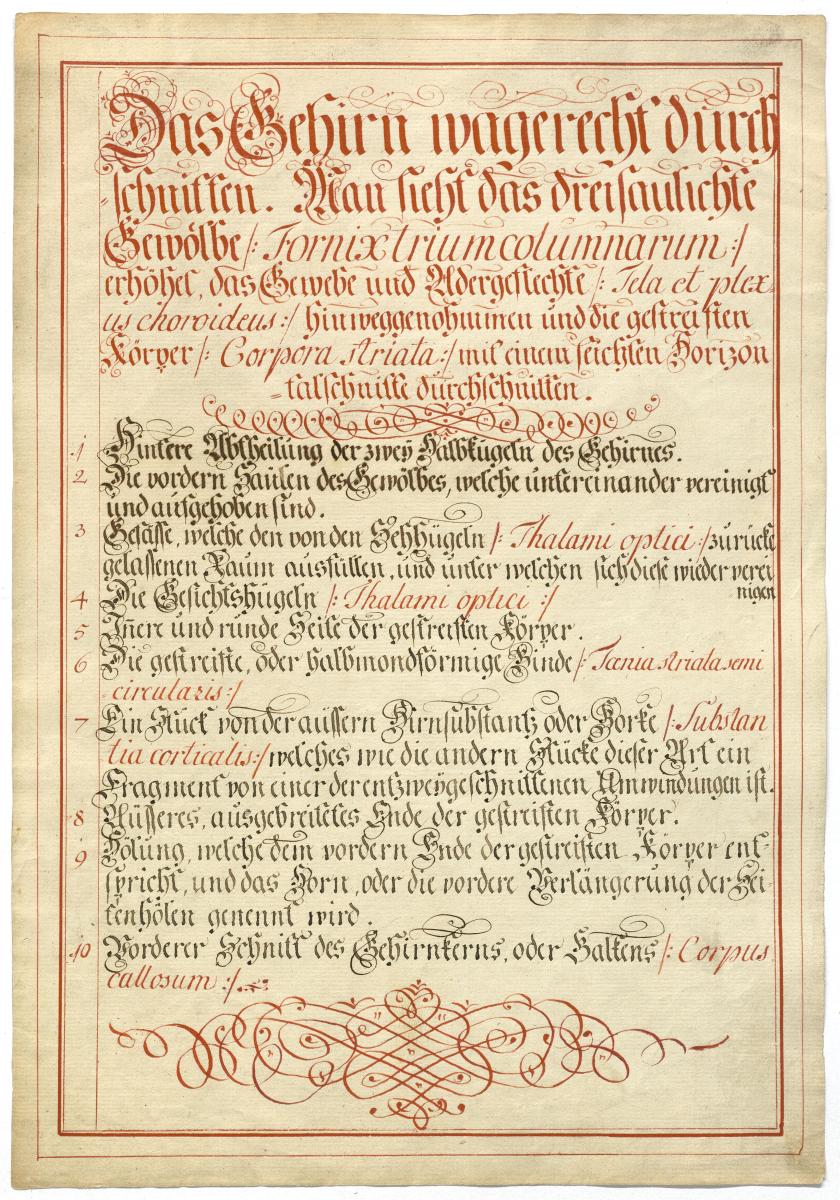 Das Gehirn wagerecht durch
=schnitten. Man sieht das dreisaulichte
Gewölbe /: Fornix trium columnarum :/
erhöhet, das Gewebe und Adergeflechte /: Tela et plex=
us choroideus :/ hinweggenohmmen und die gestreiften
Körper /: Corpora striata :/ mit einem seichten Horizon
=talschnitte durchschnitten.
1 Hintere Abtheilung der zwey Halbkugeln des Gehirnes.
2 Die vordern Säulen des Gewölbes, welche untereinander vereinigt
und aufgehoben sind.
3 Gefässe, welche den von den Sehhügeln /: Thalami optici :/ zurücke
gelassenen Raum ausfüllen, und unter welchen sich diese wieder verei
nigen
4 Die Gesichtshügeln /: Thalami optici :/
5 Jñere und runde Seite der gestreiften Körper.
6 Die gestreifte, oder halbmondförmige Binde /: Tænia striata semi
circularis :/
7 Ein Stück von der aüssern Hirnsubstantz oder Borke /: Substan
tia corticalis :/ welches wie die andern Stücke dieser Art ein
Fragment von einer der entzweygeschnittenen Umwindungen ist.
8 Aüsseres, ausgebreitetes Ende der gestreiften Körper.
9 Hölung, welche dem vordern Ende der gestreiften Körper ent=
spricht, und das Horn, oder die vordere Verlängerung der Sei=
tenhölen genennt wird.
10 Vorderer Schnitt des Gehirnkerns, oder Balkens /: Corpus
callosum :/